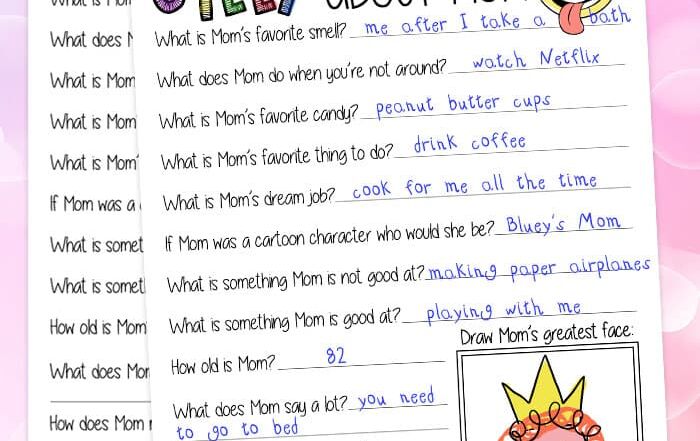 SILLY ABOUT MOM
What is Mom's favorite smell? me after I take a bath
What does Mom do when you're not around? watch Netflix
What is Mom's favorite candy? peanut butter cups
What is Mom's favorite thing to do? drink coffee
What is Mom's dream job? cook for me all the time
If Mom was a cartoon character who would she be? Bluey's Mom
What is something Mom is not good at? making paper airplanes
What is something Mom is good at? playing with me
Draw Mom's greatest face:
How old is Mom? 82
What does Mom say a lot? you need
to go to bed
What does
What is Mom
What is Mom
What is Mom'
If Mom was a
What is
What is
How old is Mom
What does
How does Mom